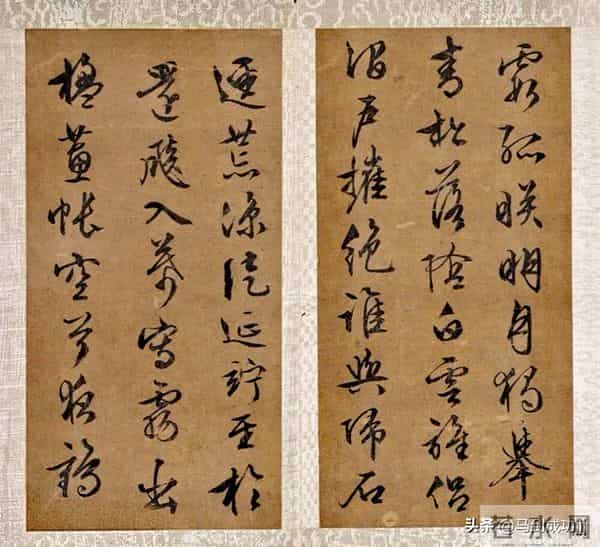 霞孤映明月獨舉
青松落陰白雲誰侶
澗戶摧絕誰與歸石
逕荒涼徒延竚至於
還飈入幕寫霧出
楹蕙帳空兮夜鶴
头条